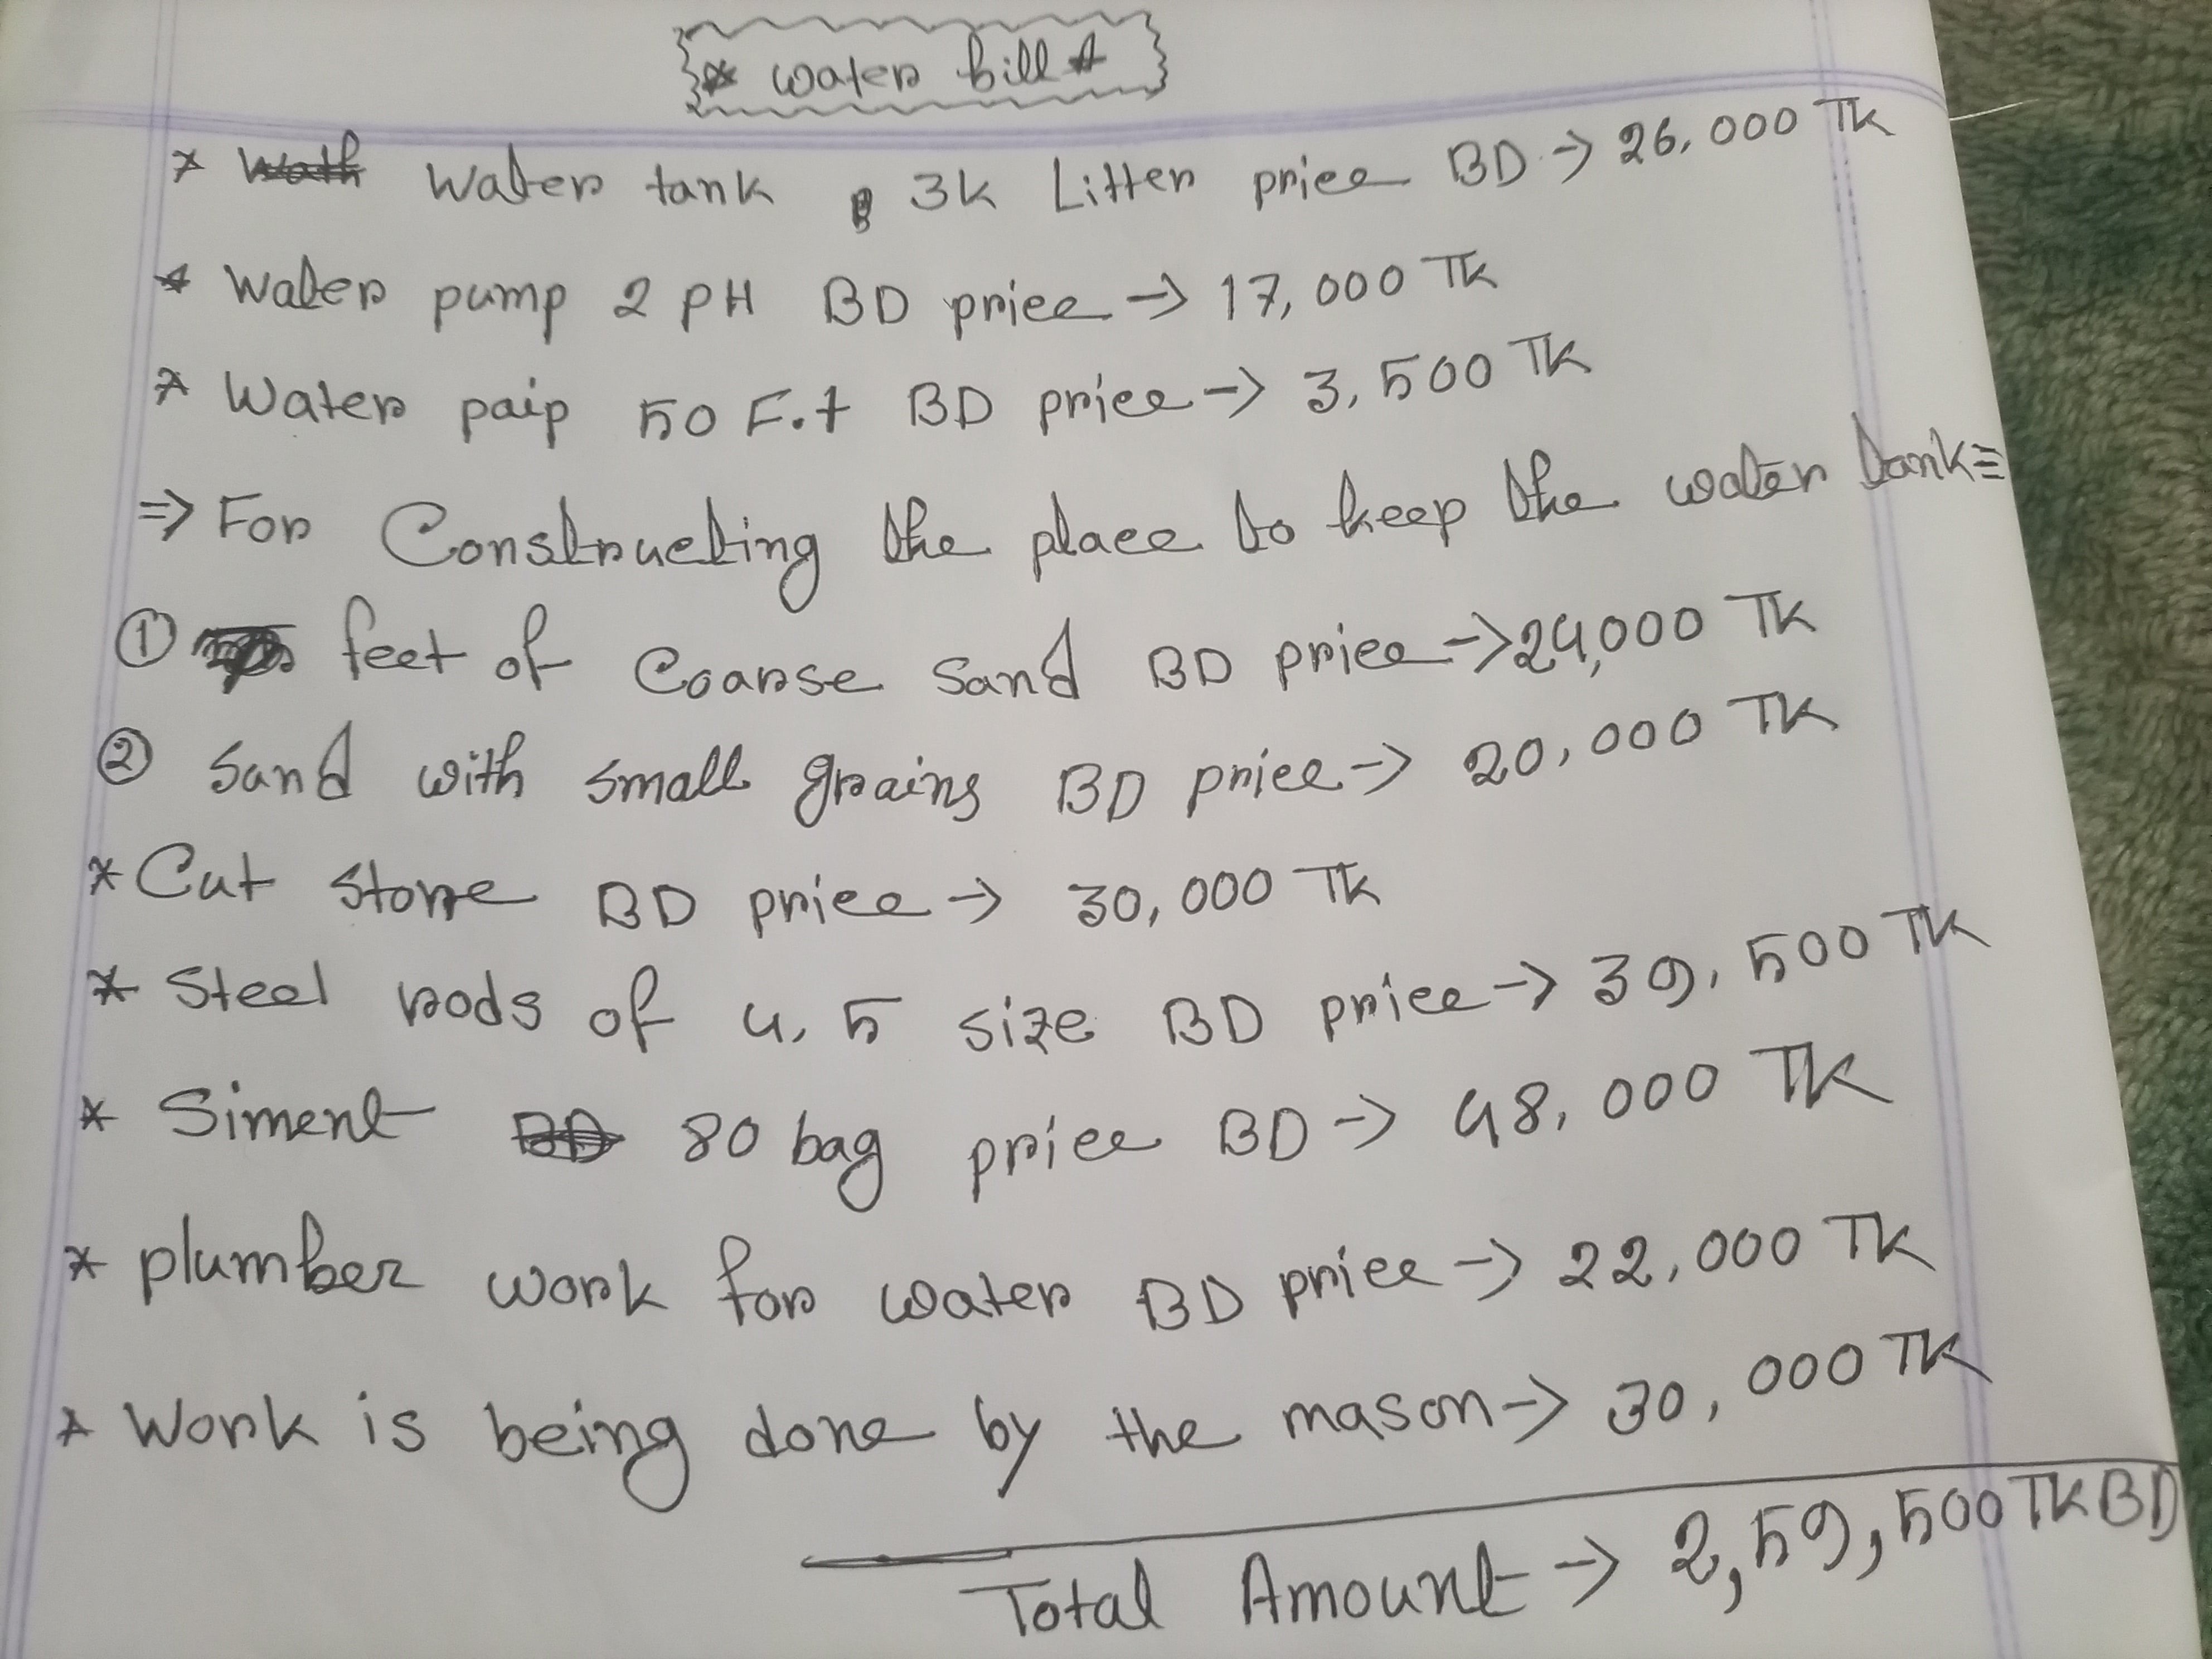 * Water bill *
* Water tank 3k Litter price BD → 26,000 Tk
* Water pump 2 PH BD price → 17,000 Tk
* Water paip 50 F.t BD price → 3,500 Tk
⇒ For Constructing the place to keep the water tank =
① feet of Coarse Sand BD price → 24,000 Tk
② Sand with small grains BD price → 20,000 Tk
* Cut stone BD price → 30,000 Tk
* Steel rods of 4,5 size BD price → 39,500 Tk
* Siment 80 bag price BD → 48,000 Tk
* plumber work for water BD price → 22,000 Tk
* Work is being done by the mason → 30,000 Tk
Total Amount → 2,59,500 TK BD